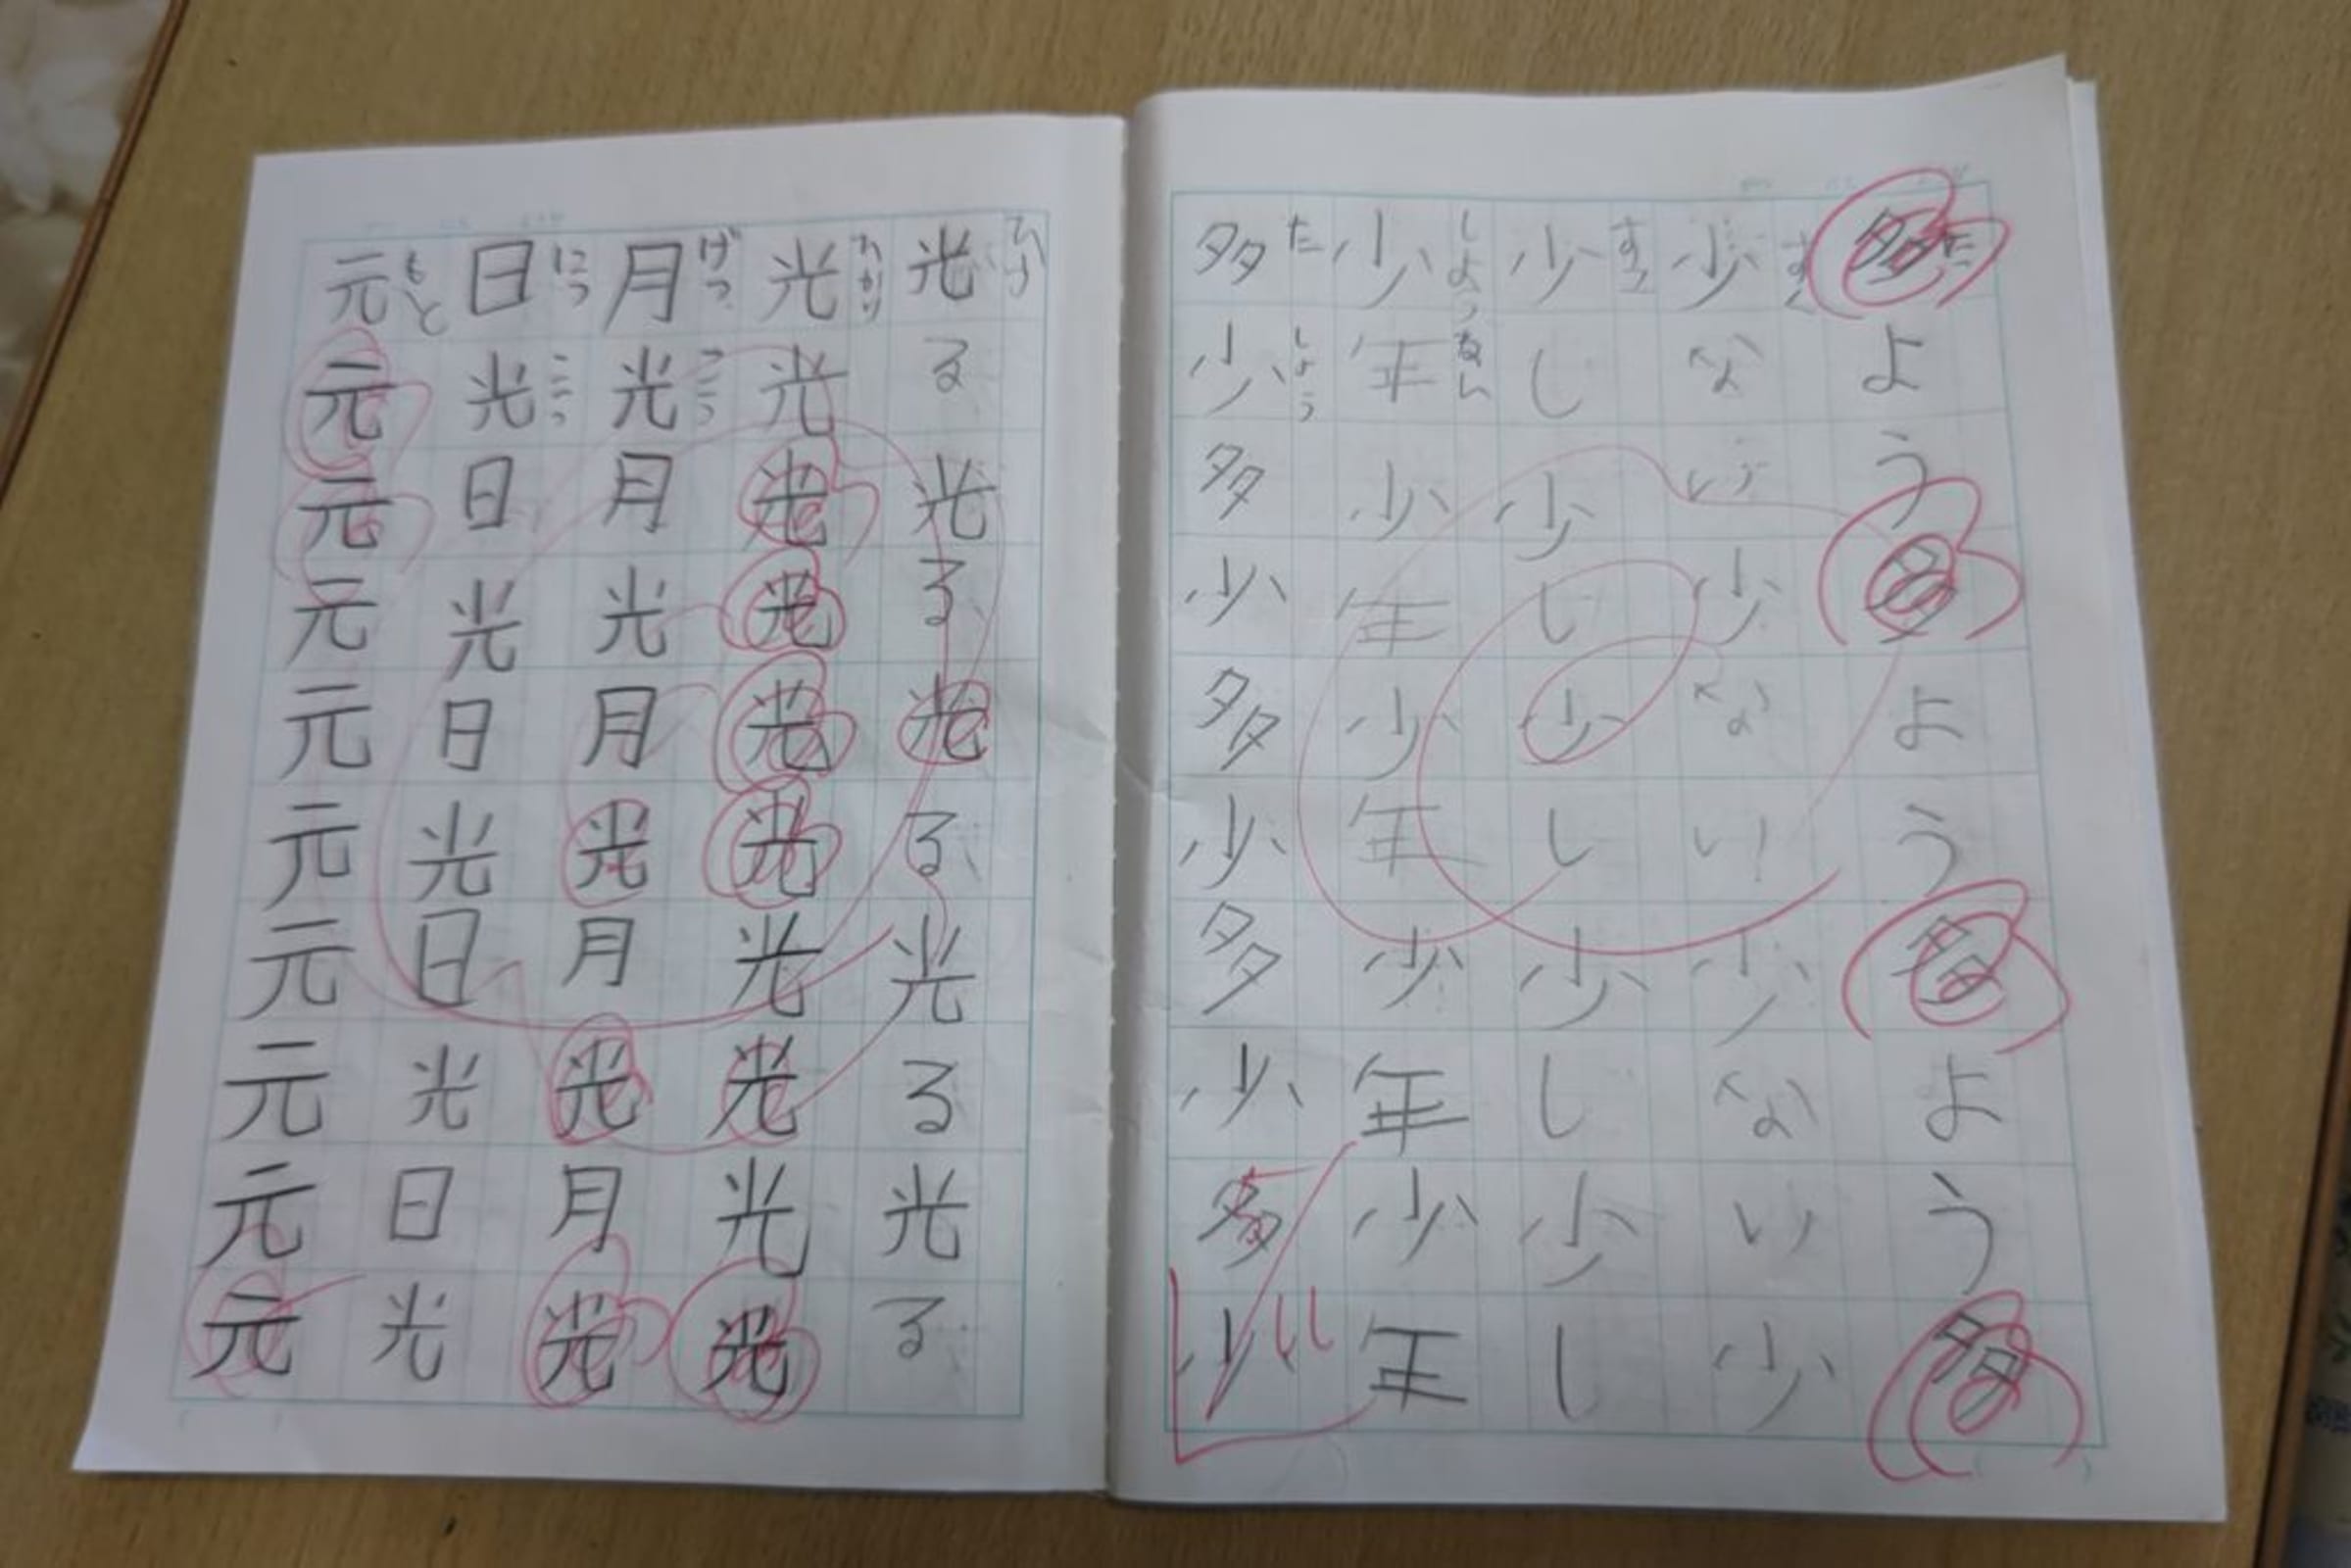 多ようた多よう多よう多
た
少ない少ない少ない少
すく
少し少し少し少し少し
すこ
少年少年少年少年少年
しょうねん
多少多少多少多少多少
たしょう
光る光る光る光る光る
ひか
光光光光光光光光光光
ひかり
月光月光月光月光月光
げっこう
日光日光日光日光日光
にっこう
元元元元元元元元元元
もと